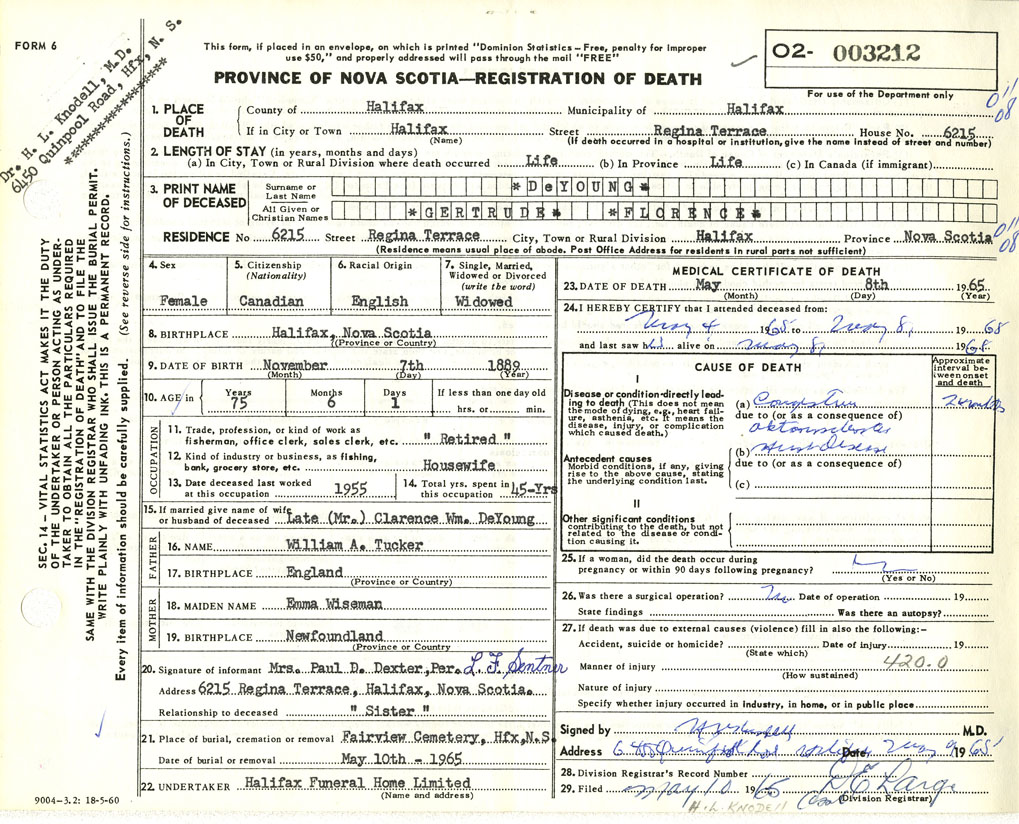 FORM 6
Dr. H. L. Knodell, M.D.
6450 Quinpool Road, Hfx, N. S.
*****************
This form, if placed in an envelope, on which is printed "Dominion Statistics – Free, penalty for improper
use $50," and properly addressed will pass through the mail "FREE"
PROVINCE OF NOVA SCOTIA—REGISTRATION OF DEATH
02- 003212
For use of the Department only
011
08
1. PLACE OF DEATH County of Halifax Municipality of Halifax
If in City or Town Halifax Street Regina Terrace House No. 6215
(Name) (If death occurred in a hospital or institution, give the name instead of street and number)
2. LENGTH OF STAY (in years, months and days)
(a) In City, Town or Rural Division where death occurred Life (b) In Province Life (c) In Canada (if immigrant)
3. PRINT NAME OF DECEASED Surname or Last Name *DeYOUNG*
All Given or Christian Names *GERTRUDE* *FLORENCE*
RESIDENCE No 6215 Street Regina Terrace City, Town or Rural Division Halifax Province Nova Scotia
011
08
(Residence means usual place of abode. Post Office Address for residents in rural parts not sufficient)
4. Sex Female
5. Citizenship (Nationality) Canadian
6. Racial Origin English
7. Single, Married, Widowed or Divorced (write the word) Widowed
8. BIRTHPLACE Halifax, Nova Scotia
(Province or Country)
9. DATE OF BIRTH November 7th 1889
(Month) (Day) (Year)
10. AGE in Years 75 Months 6 Days 1 If less than one day old
hrs. or min.
OCCUPATION
11. Trade, profession, or kind of work as
fisherman, office clerk, sales clerk, etc. " Retired "
12. Kind of industry or business, as fishing,
bank, grocery store, etc. Housewife
13. Date deceased last worked
at this occupation 1955
14. Total yrs. spent in
this occupation 45-Yrs
15. If married give name of wife
or husband of deceased Late (Mr.) Clarence Wm. DeYoung
FATHER
16. NAME William A. Tucker
17. BIRTHPLACE England
(Province or Country)
MOTHER
18. MAIDEN NAME Emma Wiseman
19. BIRTHPLACE Newfoundland
(Province or Country)
20. Signature of informant Mrs. Paul D. Dexter,Per. L. F. Sentner
Address 6215 Regina Terrace, Halifax, Nova Scotia.
Relationship to deceased " Sister "
21. Place of burial, cremation or removal Fairview Cemetery, Hfx,N.S.
Date of burial or removal May 10th - 1965
22. UNDERTAKER Halifax Funeral Home Limited
(Name and address)
MEDICAL CERTIFICATE OF DEATH
23. DATE OF DEATH May 8th 1965
(Month) (Day) (Year)
24. I HEREBY CERTIFY that I attended deceased from:
May 4 1965 to May 8, 1965
and last saw h alive on May 8, 1965
CAUSE OF DEATH
Approximate interval between onset and death
I
Disease or condition directly leading to death (This does not mean
the mode of dying, e.g., heart failure, asthenia, etc. It means the
disease, injury, or complication
which caused death.)
(a)
due to (or as a consequence of)
Antecedent causes
Morbid conditions, if any, giving
rise to the above cause, stating
the underlying condition last.
(b) Heart Disease
due to (or as a consequence of)
(c)
II
Other significant conditions
contributing to the death, but not
related to the disease or condition causing it.
25. If a woman, did the death occur during
pregnancy or within 90 days following pregnancy?
(Yes or No)
26. Was there a surgical operation? No Date of operation 19
State findings Was there an autopsy?
27. If death was due to external causes (violence) fill in also the following:–
Accident, suicide or homicide? Date of injury 19
(State which)
Manner of injury 420.0
(How sustained)
Nature of injury
Specify whether injury occurred in industry, in home, or in public place
Signed by M.D.
Address Date May 9 1965
28. Division Registrar's Record Number
29. Filed May 10 1965
(Division Registrar)
H. L. KNODELL
SEC. 14 – VITAL STATISTICS ACT MAKES IT THE DUTY
OF THE UNDERTAKER OR PERSON ACTING AS UNDER-
TAKER TO OBTAIN ALL THE PARTICULARS REQUIRED
IN THE "REGISTRATION OF DEATH" AND TO FILE THE
SAME WITH THE DIVISION REGISTRAR WHO SHALL ISSUE THE BURIAL PERMIT.
WRITE PLAINLY WITH UNFADING INK. THIS IS A PERMANENT RECORD.
Every item of information should be carefully supplied. (See reverse side for instructions.)
9004-3.2: 18-5-60